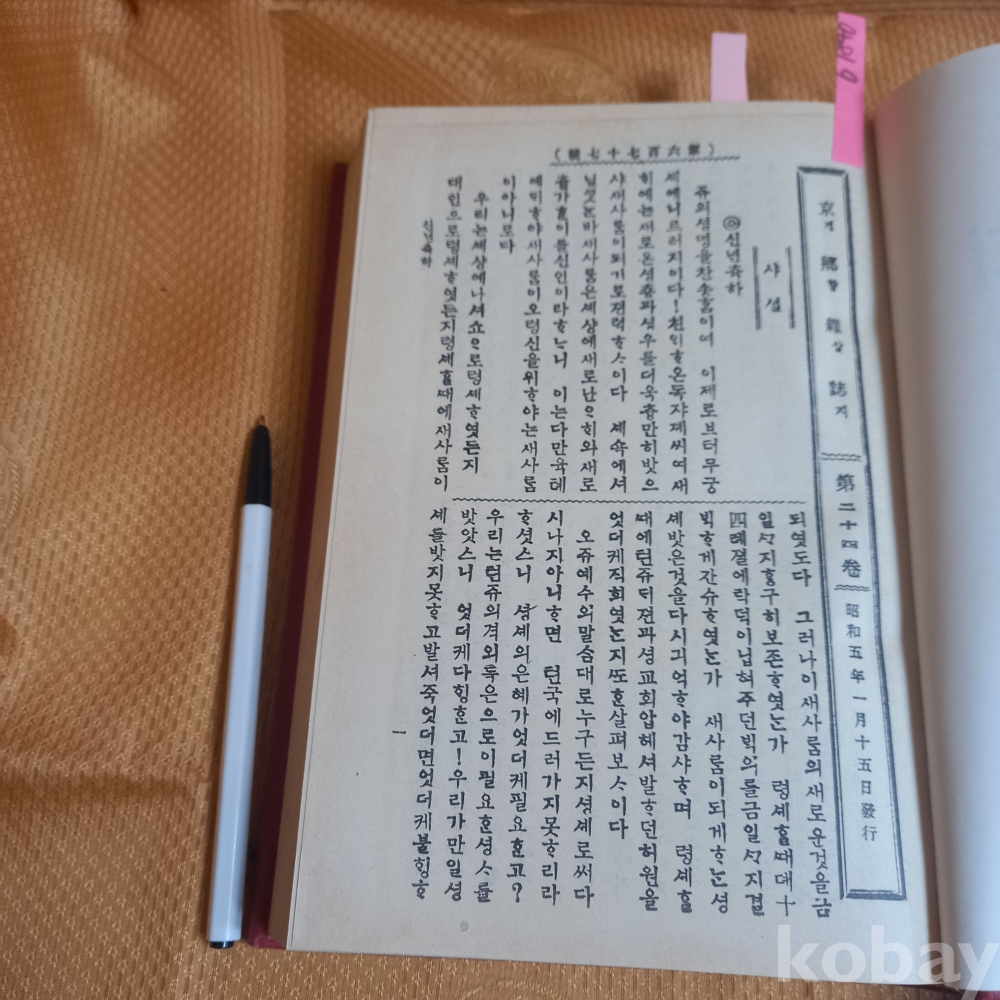 아이용
(第六百七十七號)
京경 鄕향 雜잡 誌지 第二十四卷 昭和五年一月十五日發行
샤셜
◎신년츅하
쥬의셩명을찬숑ᄒᆞᆷ이여 이제로브터무궁
셰에니르러지이다! 친이ᄒᆞ온독쟈제씨여새
ᄒᆡ에ᄂᆞᆫ새로온셩춍과셩우를더욱츙만히밧으
샤새사ᄅᆞᆷ이되기로젼력ᄒᆞᄉᆞ이다 셰쇽에셔
닐ᄏᆞᆺᄂᆞᆫ바새사ᄅᆞᆷ은셰상에새로난ᄋᆞᄒᆡ와새로
츌가ᄒᆞᆫ이를신인이라ᄒᆞᄂᆞ니 이ᄂᆞᆫ다만육톄
에ᄃᆡᄒᆞ야새사ᄅᆞᆷ이오령신을위ᄒᆞ야ᄂᆞᆫ새사ᄅᆞᆷ
이아니로다
우리ᄂᆞᆫ셰상에나셔쇼ᄋᆞ로령셰ᄒᆞ엿든지
대인으로령셰ᄒᆞ엿든지령셰ᄒᆞᆯᄯᅢ에새사ᄅᆞᆷ이
되엿도다 그러나이새사ᄅᆞᆷ의새로운것을금
일ᄭᆞ지ᄒᆞᆼ구히보존ᄒᆞ엿ᄂᆞᆫ가 령셰ᄒᆞᆯᄯᅢ대十
四톄졀에락덕이닙혀주던ᄇᆡᆨ의를금일ᄭᆞ지결
ᄇᆡᆨᄒᆞ게잔슈ᄒᆞ엿ᄂᆞᆫ가 새사ᄅᆞᆷ이되게ᄒᆞᄂᆞᆫ셩
셰밧은것을다시긔억ᄒᆞ야감샤ᄒᆞ며 령셰ᄒᆞᆯ
ᄯᅢ에텬쥬ᄃᆡ젼과셩교회압헤셔발ᄒᆞ던허원을
엇더케직희엿ᄂᆞᆫ지ᄯᅩᄒᆞᆫ살펴보ᄉᆞ이다
오쥬예수의말ᄉᆞᆷ대로누구든지셩셰로써다
시나지아니ᄒᆞ면 텬국에드러가지못ᄒᆞ리라
ᄒᆞ셧스니 셩셰의은혜가엇더케필요ᄒᆞᆫ고?
우리ᄂᆞᆫ텬쥬의격외특은으로이필요ᄒᆞᆫ셩ᄉᆞ를
밧앗스니 엇더케다ᄒᆡᆼᄒᆞᆫ고!우리가만일셩
셰를밧지못ᄒᆞ고발셔죽엇더면엇더케불ᄒᆡᆼᄒᆞ
신년츅하
一
kobay